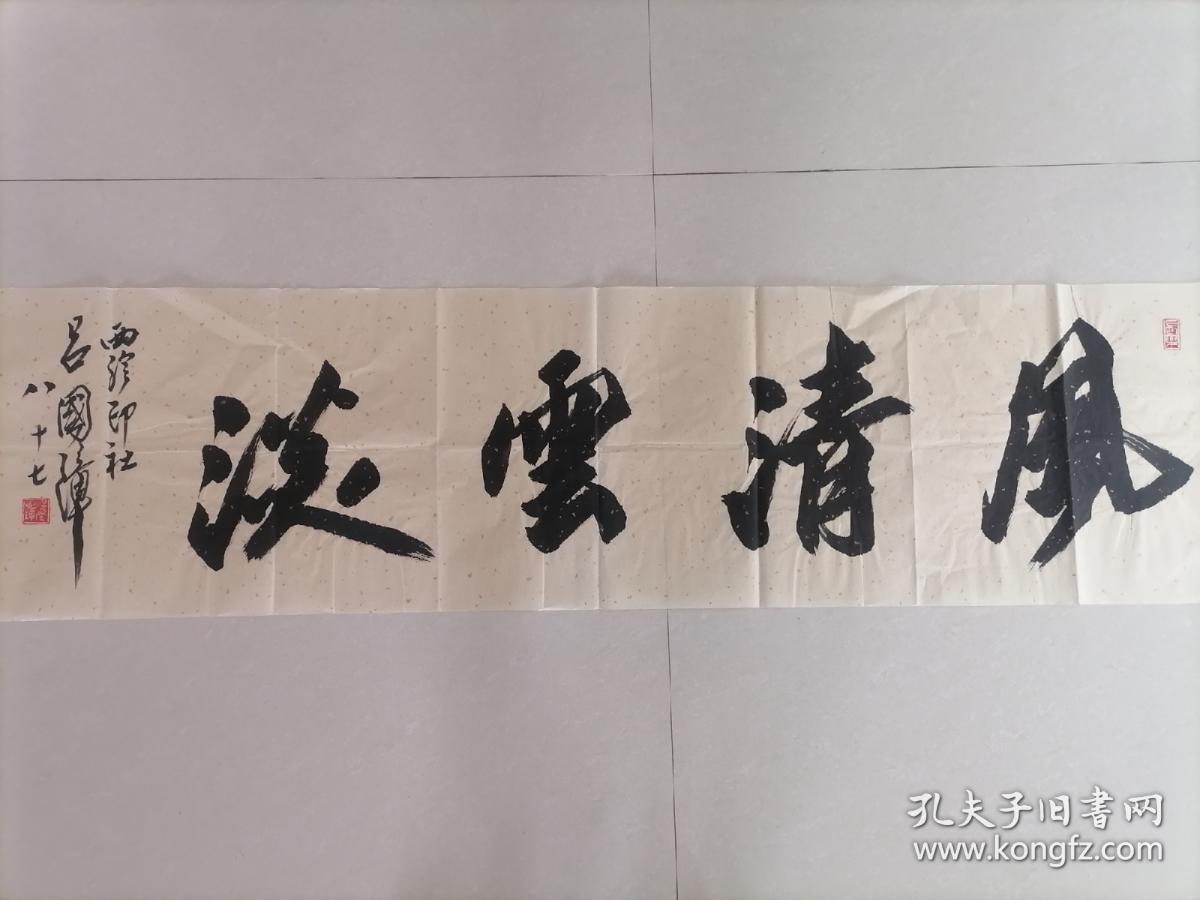 風清雲淡
西泠印社
呂國璋
八十七
孔夫子旧书网
www.kongfz.com